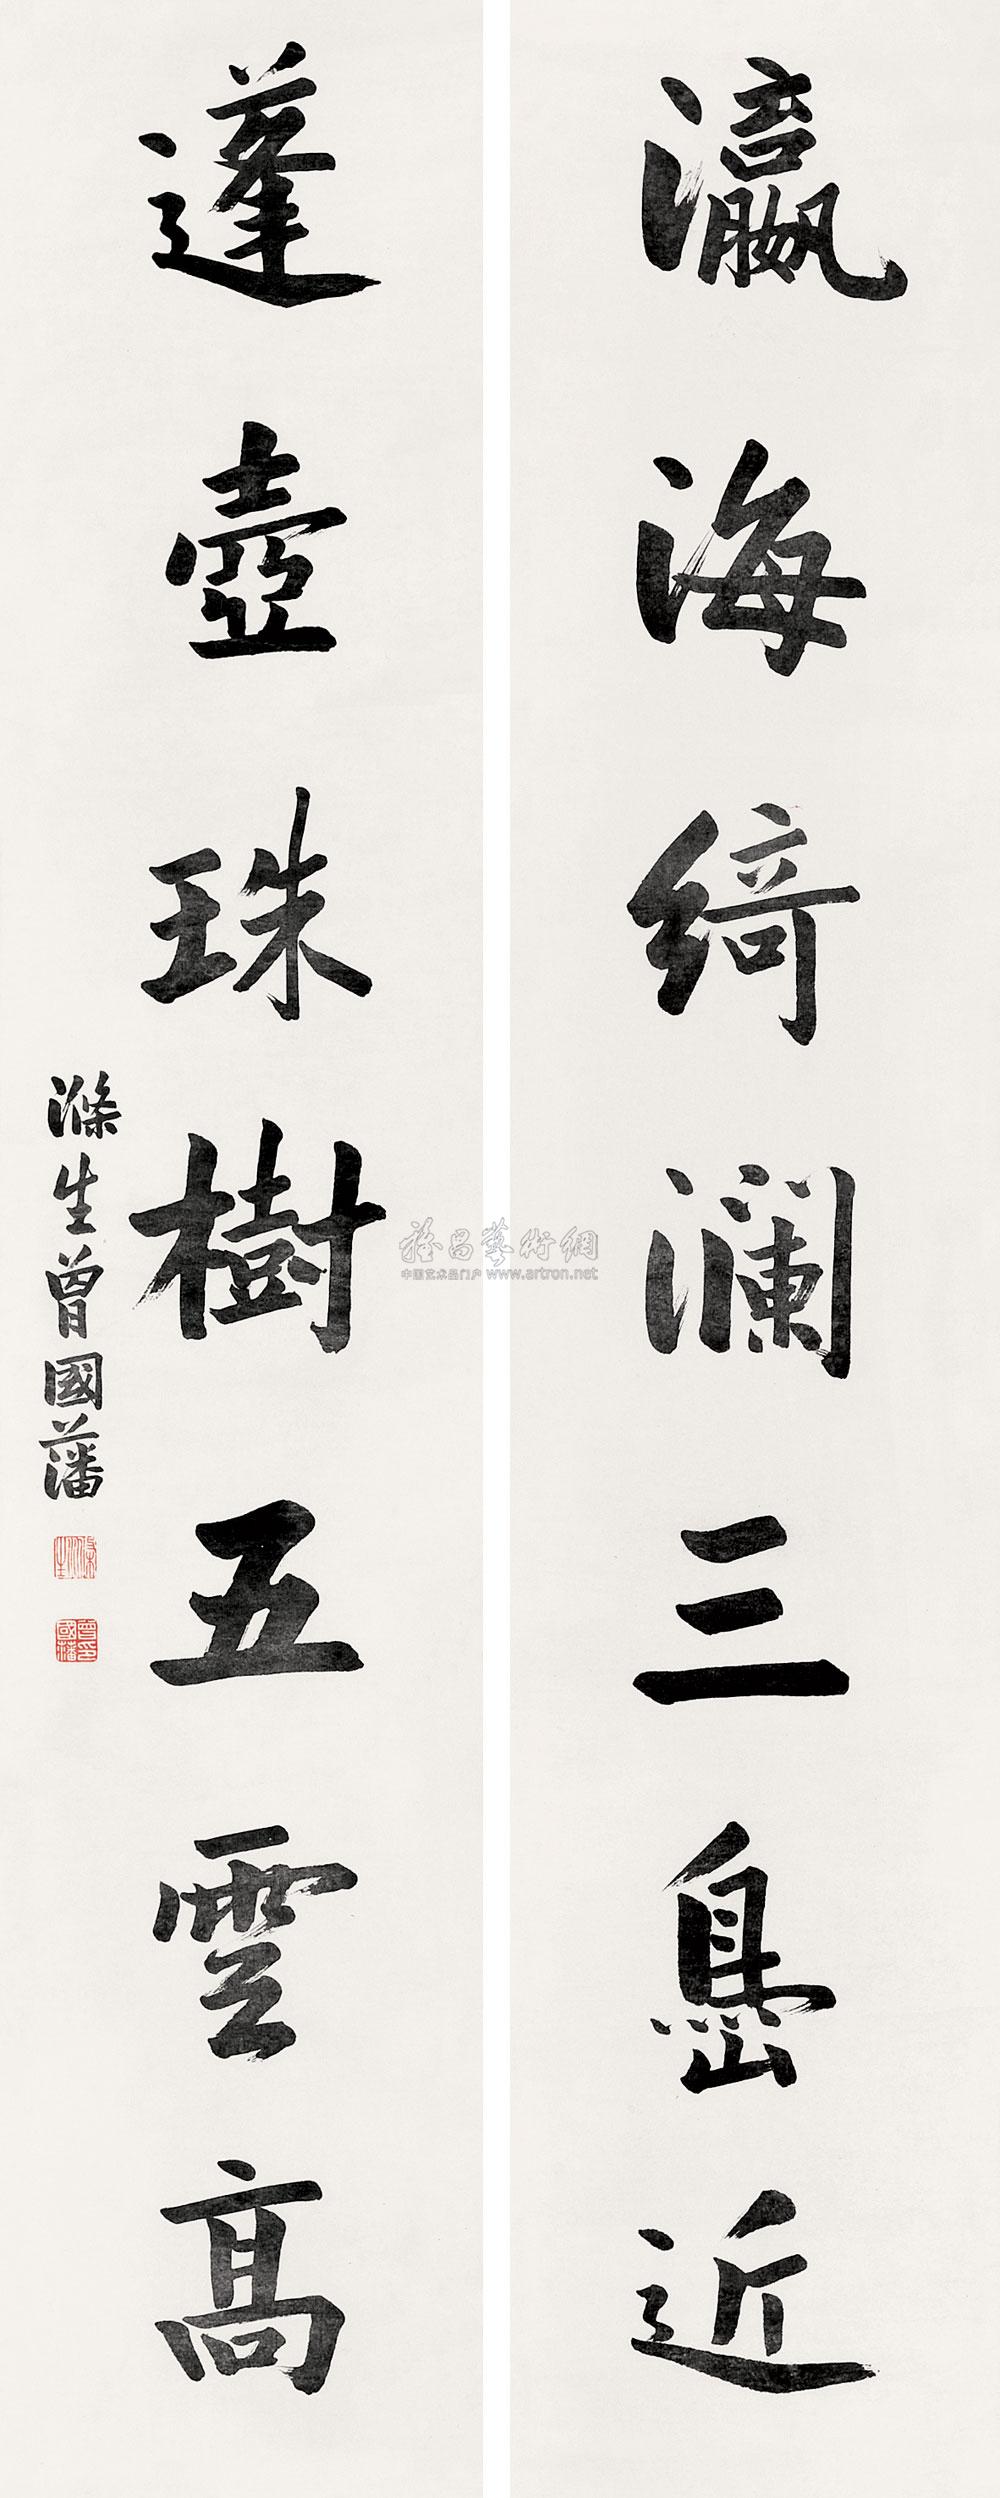 瀛海綺瀾三島近
蓬壺珠樹五雲高
滌生曾國藩
滌生
曾國藩印
雅昌藝術網
中国艺术品门户 www.artron.net